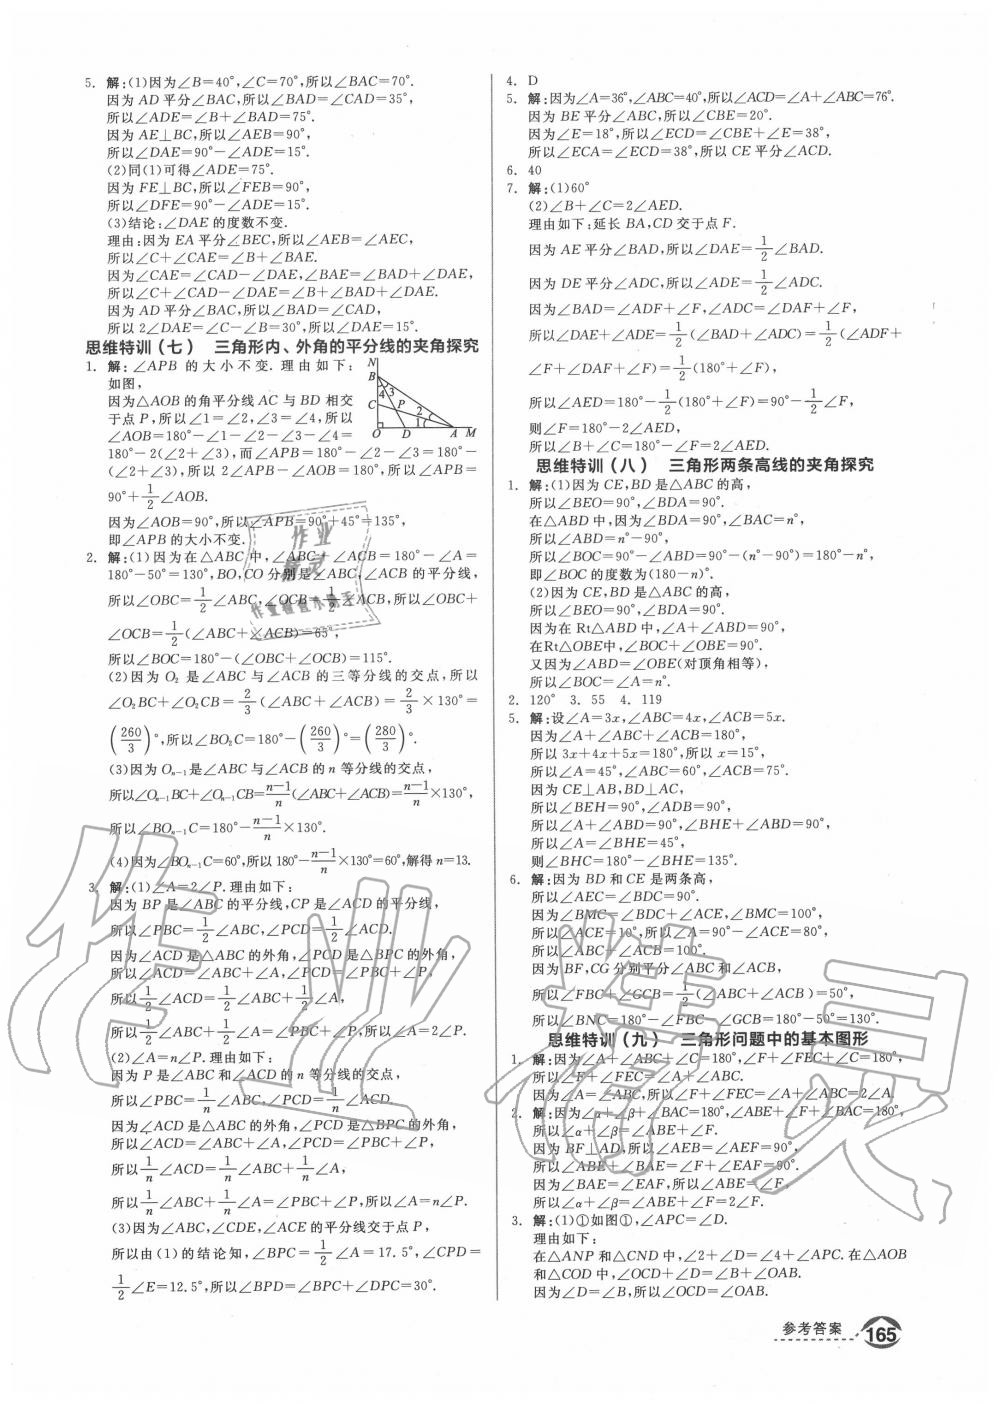 5. 解:(1)因为∠B=40°,∠C=70°,所以∠BAC=70°.
因为 AD 平分∠BAC,所以∠BAD=∠CAD=35°,
所以∠ADE=∠B+∠BAD=75°.
因为 AE⊥BC,所以∠AEB=90°,
所以∠DAE=90°-∠ADE=15°.
(2)同(1)可得∠ADE=75°.
因为 FE⊥BC,所以∠FEB=90°,
所以∠DFE=90°-∠ADE=15°.
(3)结论:∠DAE 的度数不变.
理由:因为 EA 平分∠BEC,所以∠AEB=∠AEC,
所以∠C+∠CAE=∠B+∠BAE.
因为∠CAE=∠CAD-∠DAE,∠BAE=∠BAD+∠DAE,
所以∠C+∠CAD-∠DAE=∠B+∠BAD+∠DAE.
因为 AD 平分∠BAC,所以∠BAD=∠CAD,
所以 2∠DAE=∠C-∠B=30°,所以∠DAE=15°.
思维特训(七) 三角形内、外角的平分线的夹角探究
1. 解:∠APB 的大小不变. 理由如下:
如图,
因为△AOB 的角平分线 AC 与 BD 相交
于点 P,所以∠1=∠2,∠3=∠4,所以
∠AOB=180°-∠1-∠2-∠3-∠4=
180°-2(∠2+∠3),而∠APB=180°-∠2-∠3=180°-
(∠2+∠3),所以 2∠APB-∠AOB=180°,所以∠APB=
90°+1/2∠AOB.
因为∠AOB=90°,所以∠APB=90°+45°=135°,
即∠APB 的大小不变.
N B 4 3 C P 2 1 O D A M
2. 解:(1)因为在△ABC 中,∠ABC+∠ACB=180°-∠A=
180°-50°=130°,BO,CO 分别是∠ABC,∠ACB 的平分线,
所以∠OBC=1/2∠ABC,∠OCB=1/2∠ACB,所以∠OBC+
∠OCB=1/2(∠ABC+∠ACB)=65°,
所以∠BOC=180°-(∠OBC+∠OCB)=115°.
(2)因为 O₂ 是∠ABC 与∠ACB 的三等分线的交点,所以
∠O₂BC+∠O₂CB=2/3(∠ABC+∠ACB)=2/3×130°=
(260/3)°,所以∠BO₂C=180°-(260/3)°=(280/3)°.
(3)因为 Oₙ₋₁是∠ABC 与∠ACB 的 n 等分线的交点,
所以∠Oₙ₋₁BC+∠Oₙ₋₁CB=n-1/n(∠ABC+∠ACB)=n-1/n×130°,
所以∠BOₙ₋₁C=180°-n-1/n×130°.
(4)因为∠BOₙ₋₁C=60°,所以 180°-n-1/n×130°=60°,解得 n=13.
3. 解:(1)∠A=2∠P. 理由如下:
因为 BP 是∠ABC 的平分线,CP 是∠ACD 的平分线,
所以∠PBC=1/2∠ABC,∠PCD=1/2∠ACD.
因为∠ACD 是△ABC 的外角,∠PCD 是△BPC 的外角,
所以∠ACD=∠ABC+∠A,∠PCD=∠PBC+∠P,
所以1/2∠ACD=1/2∠ABC+1/2∠A,
所以1/2∠ABC+1/2∠A=∠PBC+∠P,所以∠A=2∠P.
(2)∠A=n∠P. 理由如下:
因为 P 是∠ABC 和∠ACD 的 n 等分线的交点,
所以∠PBC=1/n∠ABC,∠PCD=1/n∠ACD.
因为∠ACD 是△ABC 的外角,∠PCD 是△BPC 的外角,
所以∠ACD=∠ABC+∠A,∠PCD=∠PBC+∠P,
所以1/n∠ACD=1/n∠ABC+1/n∠A,
所以1/n∠ABC+1/n∠A=∠PBC+∠P,所以∠A=n∠P.
(3)因为∠ABC,∠CDE,∠ACE 的平分线交于点 P,
所以由(1)的结论知,∠BPC=1/2∠A=17.5°,∠CPD=
1/2∠E=12.5°,所以∠BPD=∠BPC+∠DPC=30°.
4. D
5. 解:因为∠A=36°,∠ABC=40°,所以∠ACD=∠A+∠ABC=76°.
因为 BE 平分∠ABC,所以∠CBE=20°.
因为∠E=18°,所以∠ECD=∠CBE+∠E=38°,
所以∠ECA=∠ECD=38°,所以 CE 平分∠ACD.
6. 40
7. 解:(1)60°
(2)∠B+∠C=2∠AED.
理由如下:延长 BA,CD 交于点 F.
因为 AE 平分∠BAD,所以∠DAE=1/2∠BAD.
因为 DE 平分∠ADC,所以∠ADE=1/2∠ADC.
因为∠BAD=∠ADF+∠F,∠ADC=∠DAF+∠F,
所以∠DAE+∠ADE=1/2(∠BAD+∠ADC)=1/2(∠ADF+
∠F+∠DAF+∠F)=1/2(180°+∠F),
所以∠AED=180°-1/2(180°+∠F)=90°-1/2∠F,
则∠F=180°-2∠AED,
所以∠B+∠C=180°-∠F=2∠AED.
思维特训(八) 三角形两条高线的夹角探究
1. 解:(1)因为 CE,BD 是△ABC 的高,
所以∠BEO=90°,∠BDA=90°.
在△ABD 中,因为∠BDA=90°,∠BAC=n°,
所以∠ABD=n°-90°,
所以∠BOC=90°-∠ABD=90°-(n°-90°)=180°-n°,
即∠BOC 的度数为(180-n)°.
(2)因为 CE,BD 是△ABC 的高,
所以∠BEO=90°,∠BDA=90°.
因为在 Rt△ABD 中,∠A+∠ABD=90°,
在Rt△OBE中,∠BOC+∠OBE=90°.
又因为∠ABD=∠OBE(对顶角相等),
所以∠BOC=∠A=n°.
2. 120° 3. 55 4. 119
5. 解:设∠A=3x,∠ABC=4x,∠ACB=5x.
因为∠A+∠ABC+∠ACB=180°,
所以 3x+4x+5x=180°,所以 x=15°,
所以∠A=45°,∠ABC=60°,∠ACB=75°.
因为 CE⊥AB,BD⊥AC,
所以∠BEH=90°,∠ADB=90°,
所以∠A+∠ABD=90°,∠BHE+∠ABD=90°,
所以∠A=∠BHE=45°,
则∠BHC=180°-∠BHE=135°.
6. 解:因为 BD 和 CE 是两条高,
所以∠AEC=∠BDC=90°.
因为∠BMC=∠BDC+∠ACE,∠BMC=100°,
所以∠ACE=10°,所以∠A=90°-∠ACE=80°,
所以∠ABC+∠ACB=100°.
因为 BF,CG 分别平分∠ABC 和∠ACB,
所以∠FBC+∠GCB=1/2(∠ABC+∠ACB)=50°,
所以∠BNC=180°-∠FBC-∠GCB=180°-50°=130°.
思维特训(九) 三角形问题中的基本图形
1. 解:因为∠A+∠ABC+∠C=180°,∠F+∠FEC+∠C=180°,
所以∠F+∠FEC=∠A+∠ABC.
因为∠A=∠ABC,所以∠F+∠FEC=∠A+∠ABC=2∠A.
2. 解:因为∠α+∠β+∠BAC=180°,∠ABE+∠F+∠BAC=180°,
所以∠α+∠β=∠ABE+∠F.
因为 BF⊥AD,所以∠AEB=∠AEF=90°,
所以∠ABE+∠BAE=∠F+∠EAF=90°.
因为∠BAE=∠EAF,所以∠ABE=∠F,
所以∠α+∠β=∠ABE+∠F=2∠F.
3. 解:(1)①如图①,∠APC=∠D.
理由如下:
在△ANP 和△CND 中,∠2+∠D=∠4+∠APC. 在△AOB
和△COD 中,∠OCD+∠D=∠B+∠OAB.
因为∠D=∠B,所以∠OCD=∠OAB.
参考答案 165
作业精灵